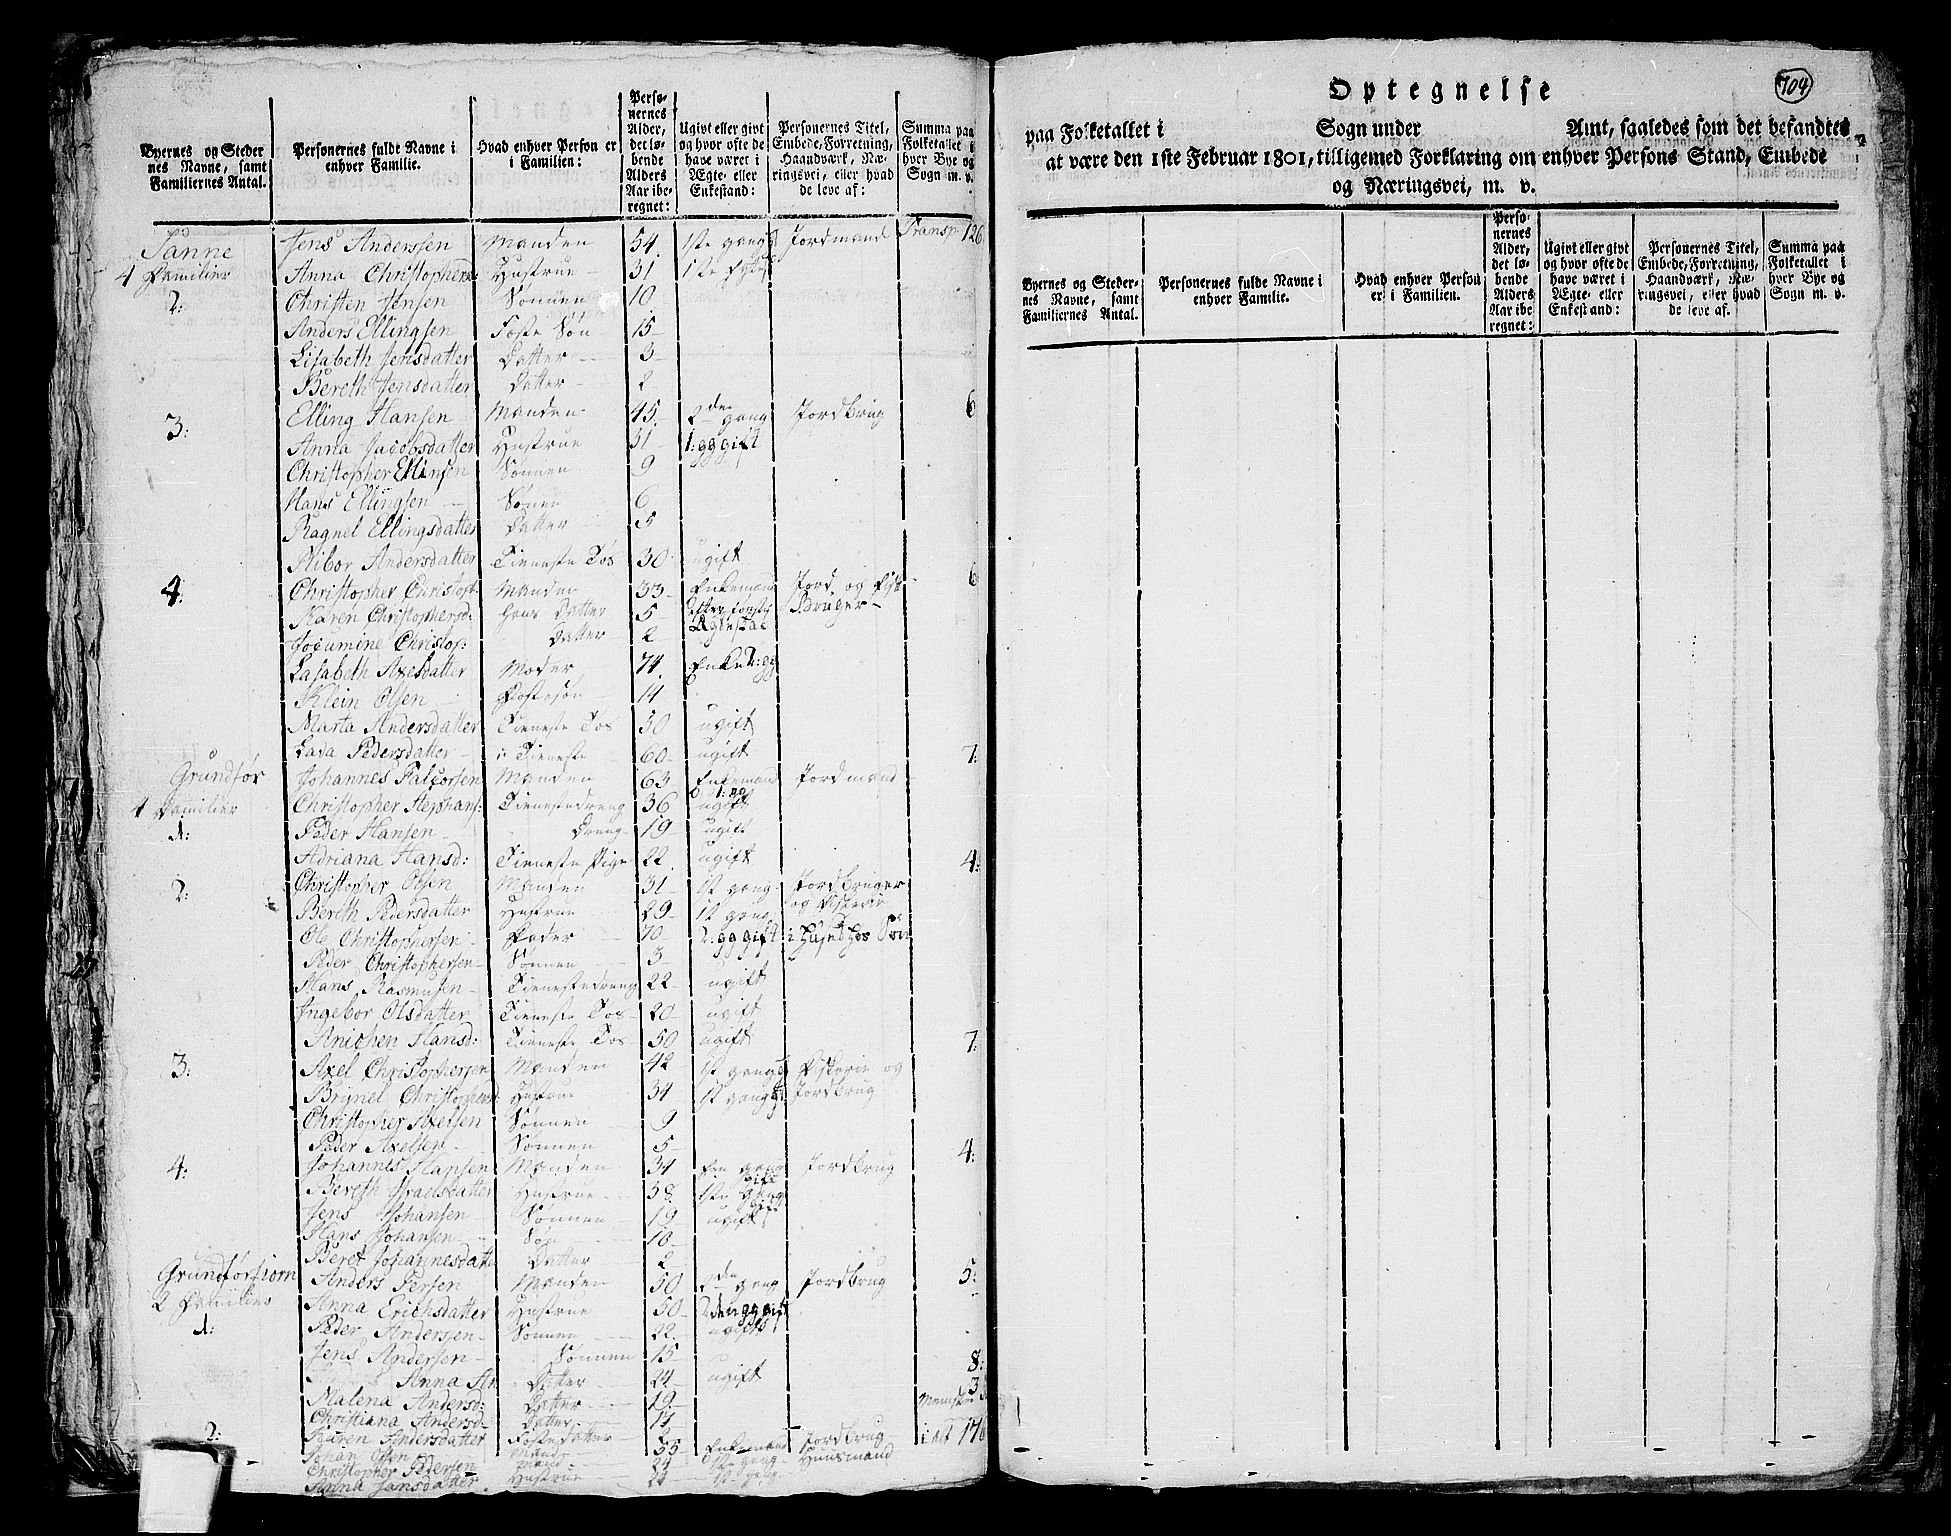 Byernes og Steder
nes Navne, samt
Familiernes Antal.
Personernes fulde Navne i
enhver Familie.
Hvad enhver Person er
i Familien:
Perso-
nernes
Alder,
det lø-
bende
Alders
Aar ibe-
regnet:
Ugivt eller givt
og hvor ofte de
have været i
Ægte- eller
Enkestand:
Personernes Titel,
Embede, Forretning,
Haandværk, Næ-
ringsvei, eller hvad
de leve af:
Summa paa
Folketallet i
hver Bye og
Sogn m. v.
Sanne Jens Anderssen Manden 54. 1ste gang Jordmand Transp 126
4 Familier Anna Christophers: Hustrue 31 1ste
2: Christen Jensen Sønnen 10
Anders Ellingsen Foste Søn 15
Lisabeth Jensdatter Datter 3
Bereth Jensdatter Datter 2
3: Elling Hansen Manden 45. 2den gang Jordbrug 6
Anna Jacobsdatter Hustrue 31 1: gg gift
Christopher Ellinsen Sønnen 9
Hans Ellingsen Sønnen 6
Ragnel Ellingsdatter Datter 5
Ribor Andersdatter Tieneste Tøs 30 ugift
4: Christopher Christop: Manden 33 Enkemand Jord og Fisk 6
Karen Christophersd: hans Datter 5 Bruger
Jocumine Christop: Datter 2
Lisabeth Axelsdatter Moder 74. Enke 1: gg
Klein Olsen Fostesøn 14
Marta Andersdatter Tieneste Tøs 50 ugift
Lava Pedersdatter i Tieneste 60 ugift 7:
Grundfør Johannes Falchsen Manden 63 Enkemand Jordmand
4 Familier Christopher Stephans: Tienestedreng 36 1: gg ugift
1: Peder Hansen Dreng 19 ugift
Adriana Hansd: Tieneste Pige 22. ugift 4:
2: Christopher Olsen Manden 31 1st gang Jordbruger
Berith Pedersdatter Hustrue 29 1st gang og Fiskerie
Ole Christophersen Fader 70 2: gg gift i Huset hos Søn
Peder Christophersen Sønnen 3
Hans Rasmusen Tienestedreng 22 ugift
Ingebor Olsdatter Tieneste Tøs 20 ugift
Anichen Hansd: Tieneste Tøs 50 ugift 7:
3: Axel Christophersen Manden 42 1st gang Fiskerie og
Brynel Christophers Hustrue 34 1st gang Jordbrug
Christopher Axelsen Sønnen 9
Peder Axelsen Sønnen 5 4:
4: Johannes Hansen Manden 34 gang gift Jordbrug
Bereth Israelsdatter Hustrue 38. 1ste gang gift
Jens Johansen Sønnen 19 ugift
Hans Johansen Søn 10
Beret Johannesdatte Datter 2
Grundførfiorn Anders Persen Manden 50 2den gang Jordbrug 5:
2 Familier Anna Erichsdatter Hustrue 50 2den gg gift
1: Peder Andersen Sønnen 22. ugift
Jens Andersen Sønnen 15
Anna An Datter 24 ugift 8:
Malena Andersd: Datter 19 3
Christiana Andersd Datter Mennsker
2: Karen Andersdatter Fostedatter Jordbrug i alt 176
Johan Olsen Mand 55 Enkemand Huusmand
Christopher Pedersen Mand 24 1ste gang
Anna Jansdatter. Hustrue 22 1st gang
704
Optegnelse
paa Folketallet i Sogn under Amt, saaledes som det befandtes
at være den 1ste Februar 1801, tilligemed Forklaring om enhver Persons Stand, Embede
og Næringsvei, m. v.
Byernes og Steder-
nes Navne, samt
Familiernes Antal.
Personernes fulde Navne i
enhver Familie.
Hvad enhver Person
er i Familien.
Perso-
nernes
Alder,
det lø-
bende
Alders
Aar ibe-
regnet:
Ugivt eller givt
og hvor ofte de
have været i
Ægte- eller
Enkestand:
Personernes Titel,
Embede, Forretning,
Haandværk, Næ-
ringsvei, eller hvad
de leve af.
Summa paa
Folketallet i
hver Bye og
Sogn m. v.